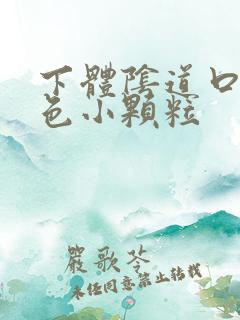 下體陰道口
色小顆粒
嚴歌苓
未任同意禁止轉載